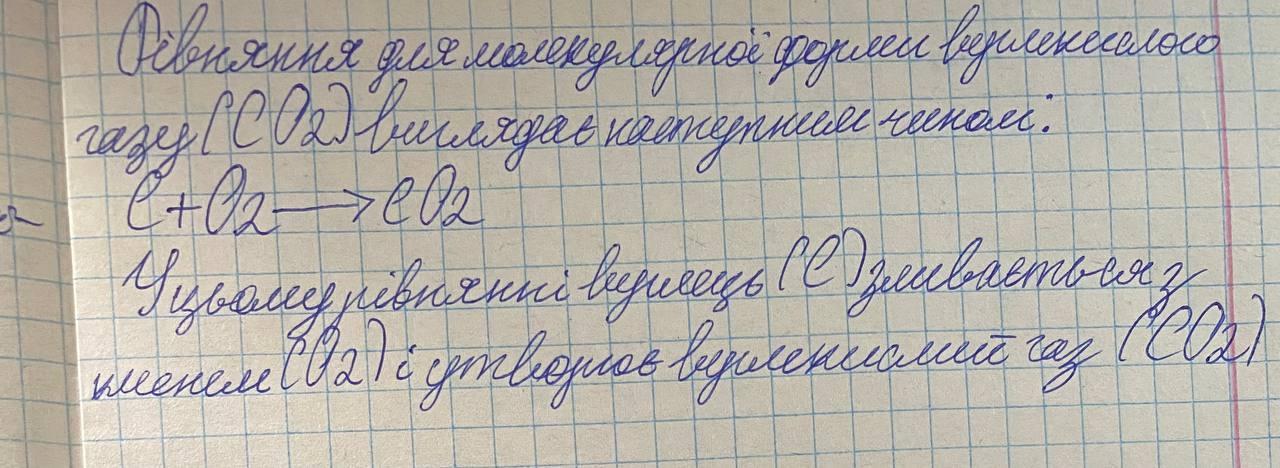 Рівняння для молекулярної форми вуглекислого
газу (CO2) виглядає наступним чином:
C+O2⟶CO2
У цьому рівнянні вуглець (C) зливається з
киснем (O2) і утворює вуглекислий газ (CO2)